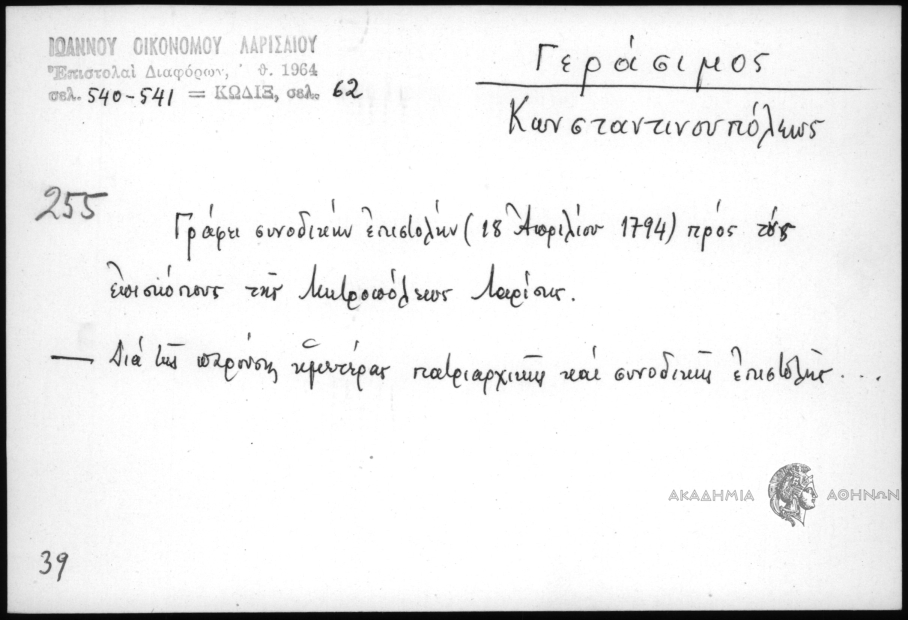 ΙΩΑΝΝΟΥ ΟΙΚΟΝΟΜΟΥ ΛΑΡΙΣΑΙΟΥ
Ἐπιστολαὶ Διαφόρων, θ. 1964
σελ. 540-541 = ΚΩΔΙΞ, σελ. 62
Γεράσιμος
Κωνσταντινουπόλεως
255
Γράφει συνοδικὴν ἐπιστολὴν (18 Ἀπριλίου 1794) πρὸς τοὺς
ἐπισκόπους τῆς Μητροπόλεως Λαρίσης.
— Διὰ τῆς παρούσης ἡμετέρας πατριαρχικῆς καὶ συνοδικῆς ἐπιστολῆς...
ΑΚΑΔΗΜΙΑ ΑΘΗΝΩΝ
39